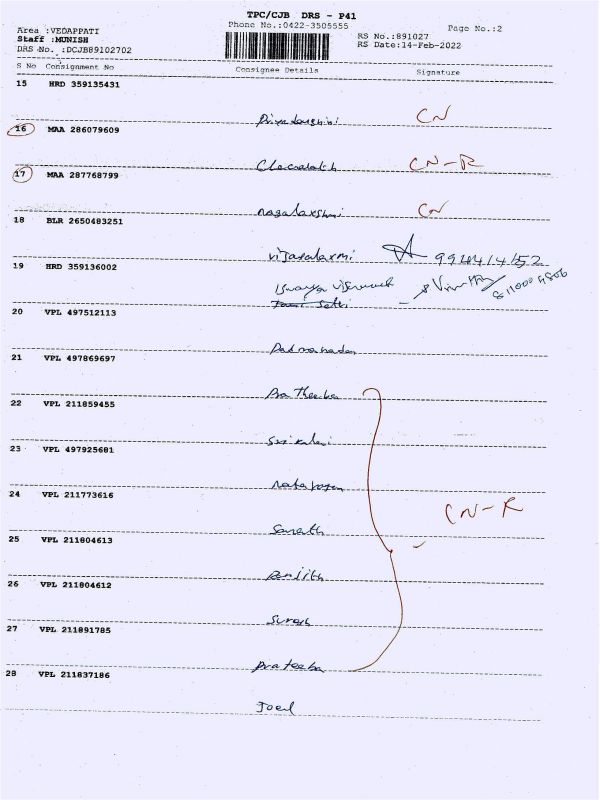 TPC/CJB DRS - P41
Area :VEDAPPATI Phone No.:0422-3505555 Page No.:2
Staff :MUNISH RS No.:891027
DRS No. :DCJB89102702 RS Date:14-Feb-2022
S No Consignment No Consignee Details Signature
15 HRD 359135431
Priyadarshini CN
16 MAA 286079609
CN-R
17 MAA 287768799
nagalaxshmi CN
18 BLR 2650483251
vijayalaxmi
19 HRD 359136002
20 VPL 497512113
Padmanadan
21 VPL 497869697
Pratheeba
22 VPL 211859455
23 VPL 497925681
24 VPL 211773616
CN-R
Sarath
25 VPL 211804613
Ranjith
26 VPL 211804612
Suresh
27 VPL 211891785
Prateeba
28 VPL 211837186
Joel